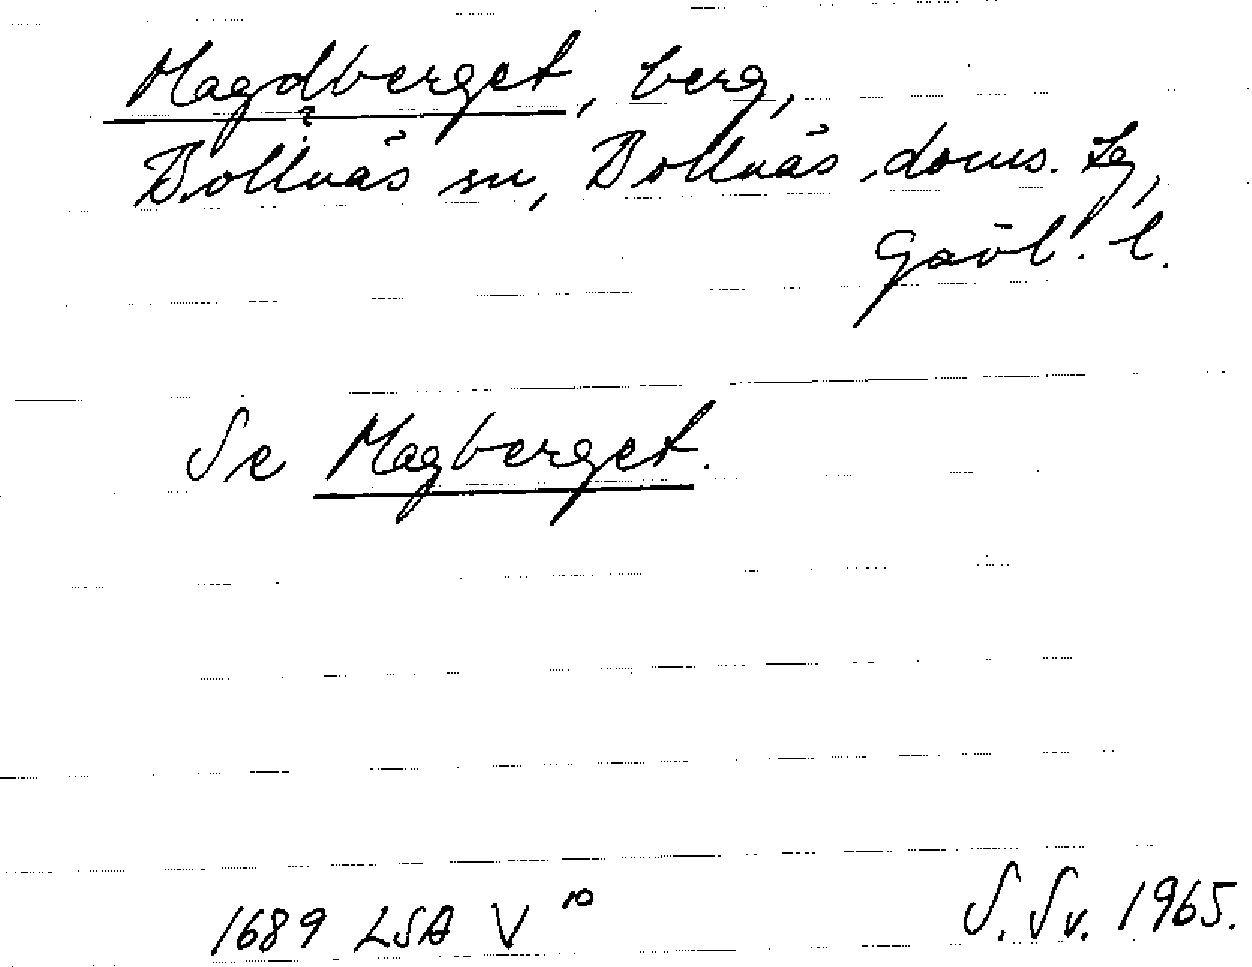 Magdberget, berg,
?
Bollnäs sn, Bollnäs doms. lg,
Gävl. l.
Se Magberget.
1689 LSA V 10
S. Sv. 1965.